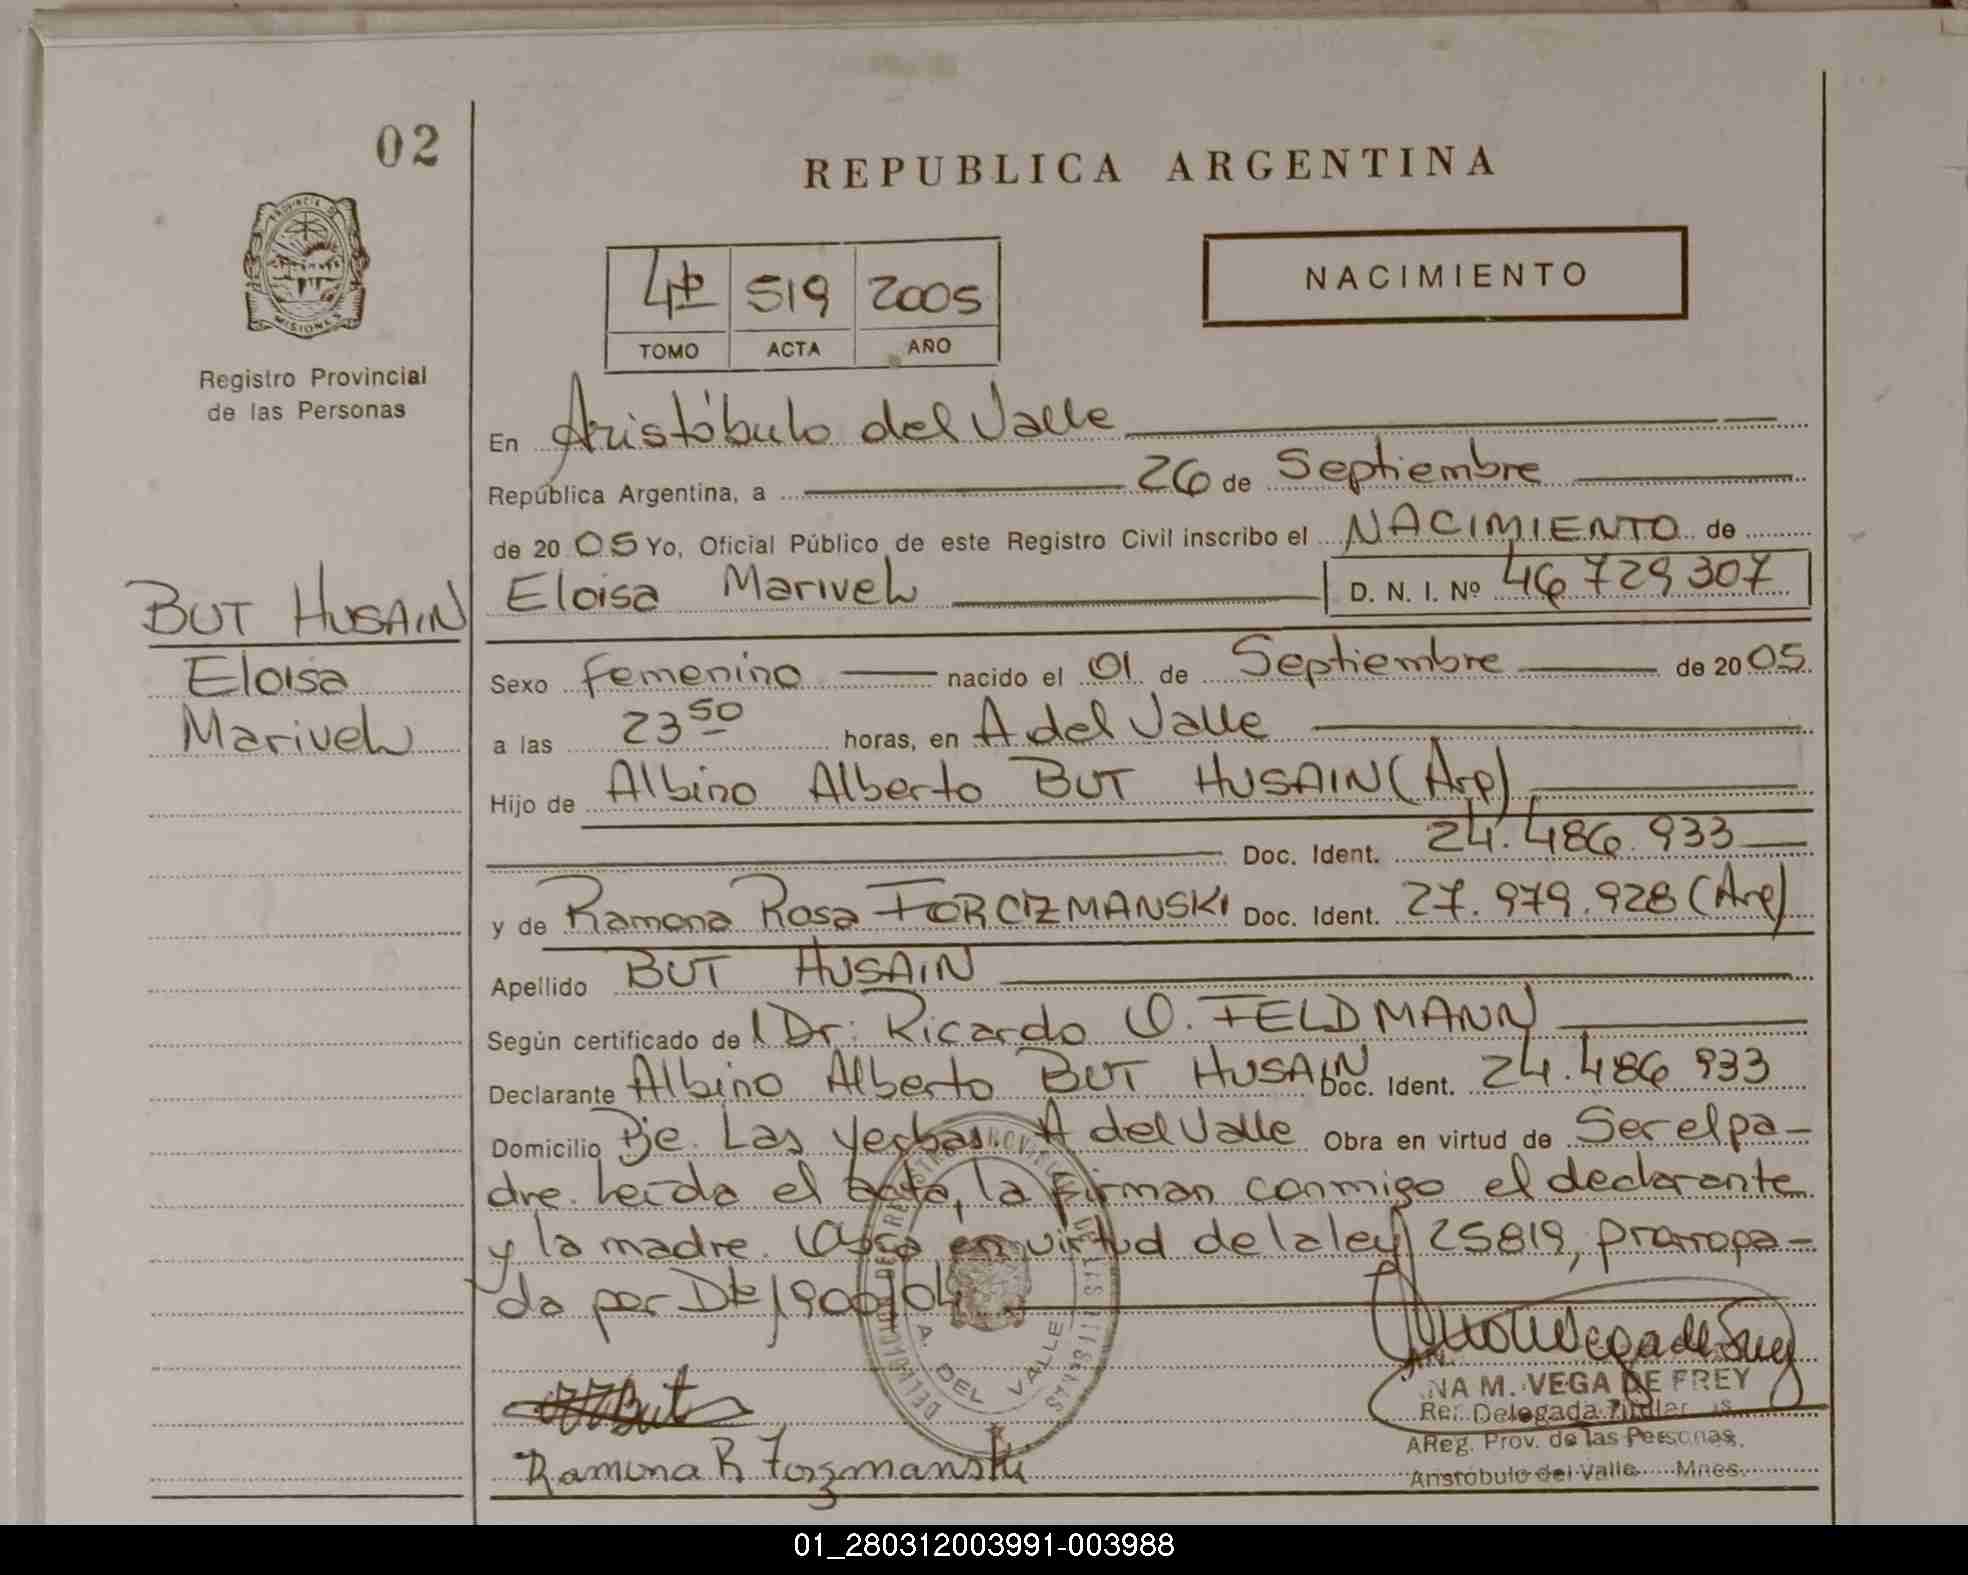 02
REPUBLICA ARGENTINA
PROVINCIA DE
MISIONES
4to 519 2005
TOMO ACTA AÑO
NACIMIENTO
Registro Provincial
de las Personas
En Aristóbulo del Valle
República Argentina, a 26 de Septiembre
de 2005 Yo, Oficial Público de este Registro Civil inscribo el NACIMIENTO de
BUT HUSAIN
Eloisa
Marivel
Eloisa Marivel D. N. I. Nº 46 729 307
Sexo femenino nacido el 01 de Septiembre de 2005
a las 23 50 horas, en A del Valle
Hijo de Albino Alberto BUT HUSAIN (Arg)
Doc. Ident. 24.486.933
y de Ramona Rosa FORCIZMANSKI Doc. Ident. 27.979.928 (Arg)
Apellido BUT HUSAIN
Según certificado de Dr: Ricardo O. FELDMANN
Declarante Albino Alberto BUT HUSAIN Doc. Ident. 24.486 933
Domicilio Bje. Las yerbas. A del Valle Obra en virtud de Ser el pa-
dre. Leída el acta, la firman conmigo el declarante
y la madre. en virtud de la ley 25819, prorroga-
da por Dto 1900/04
A. DEL VALLE
But
Ramona R
VEGA DE FREY
Delegada Titular
Reg. Prov. de las Personas
Aristóbulo del Valle Mnes.
01_280312003991-003988